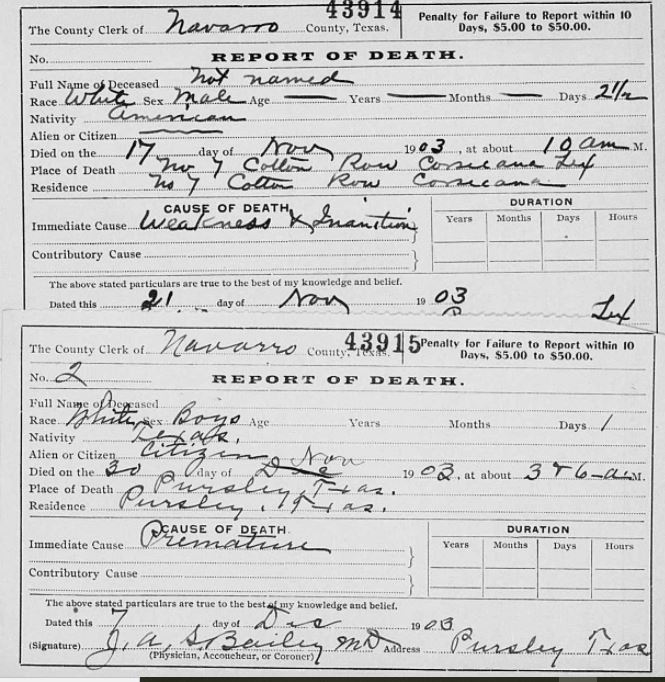 43914
The County Clerk of Navarro County, Texas.
Penalty for Failure to Report within 10
Days, $5.00 to $50.00.
No.
REPORT OF DEATH.
Full Name of Deceased Not named
Race White Sex Male Age — Years — Months — Days 2 1/2
Nativity American
Alien or Citizen
Died on the 17 day of Nov 1903, at about 10 am M.
Place of Death No 7 Cotton Row Corsicana Tex
Residence No 7 Cotton Row Corsicana
CAUSE OF DEATH.
Immediate Cause Weakness & Inanition
Contributory Cause
DURATION
Years Months Days Hours
The above stated particulars are true to the best of my knowledge and belief.
Dated this 21 day of Nov 1903
Tex
43915
The County Clerk of Navarro County, Texas.
Penalty for Failure to Report within 10
Days, $5.00 to $50.00.
No. 2
REPORT OF DEATH.
Full Name of Deceased
Race White Sex Boys Age Years Months Days 1
Nativity Texas.
Alien or Citizen Citizen
Died on the 30 day of Nov 1903, at about 3 & 6 a M.
Place of Death Pursley, Texas.
Residence Pursley, Texas.
CAUSE OF DEATH.
Immediate Cause Premature
Contributory Cause
DURATION
Years Months Days Hours
The above stated particulars are true to the best of my knowledge and belief.
Dated this 7 day of Dec 1903
(Signature) J. A. S. Bailey MD Address Pursley Texas
(Physician, Accoucheur, or Coroner)